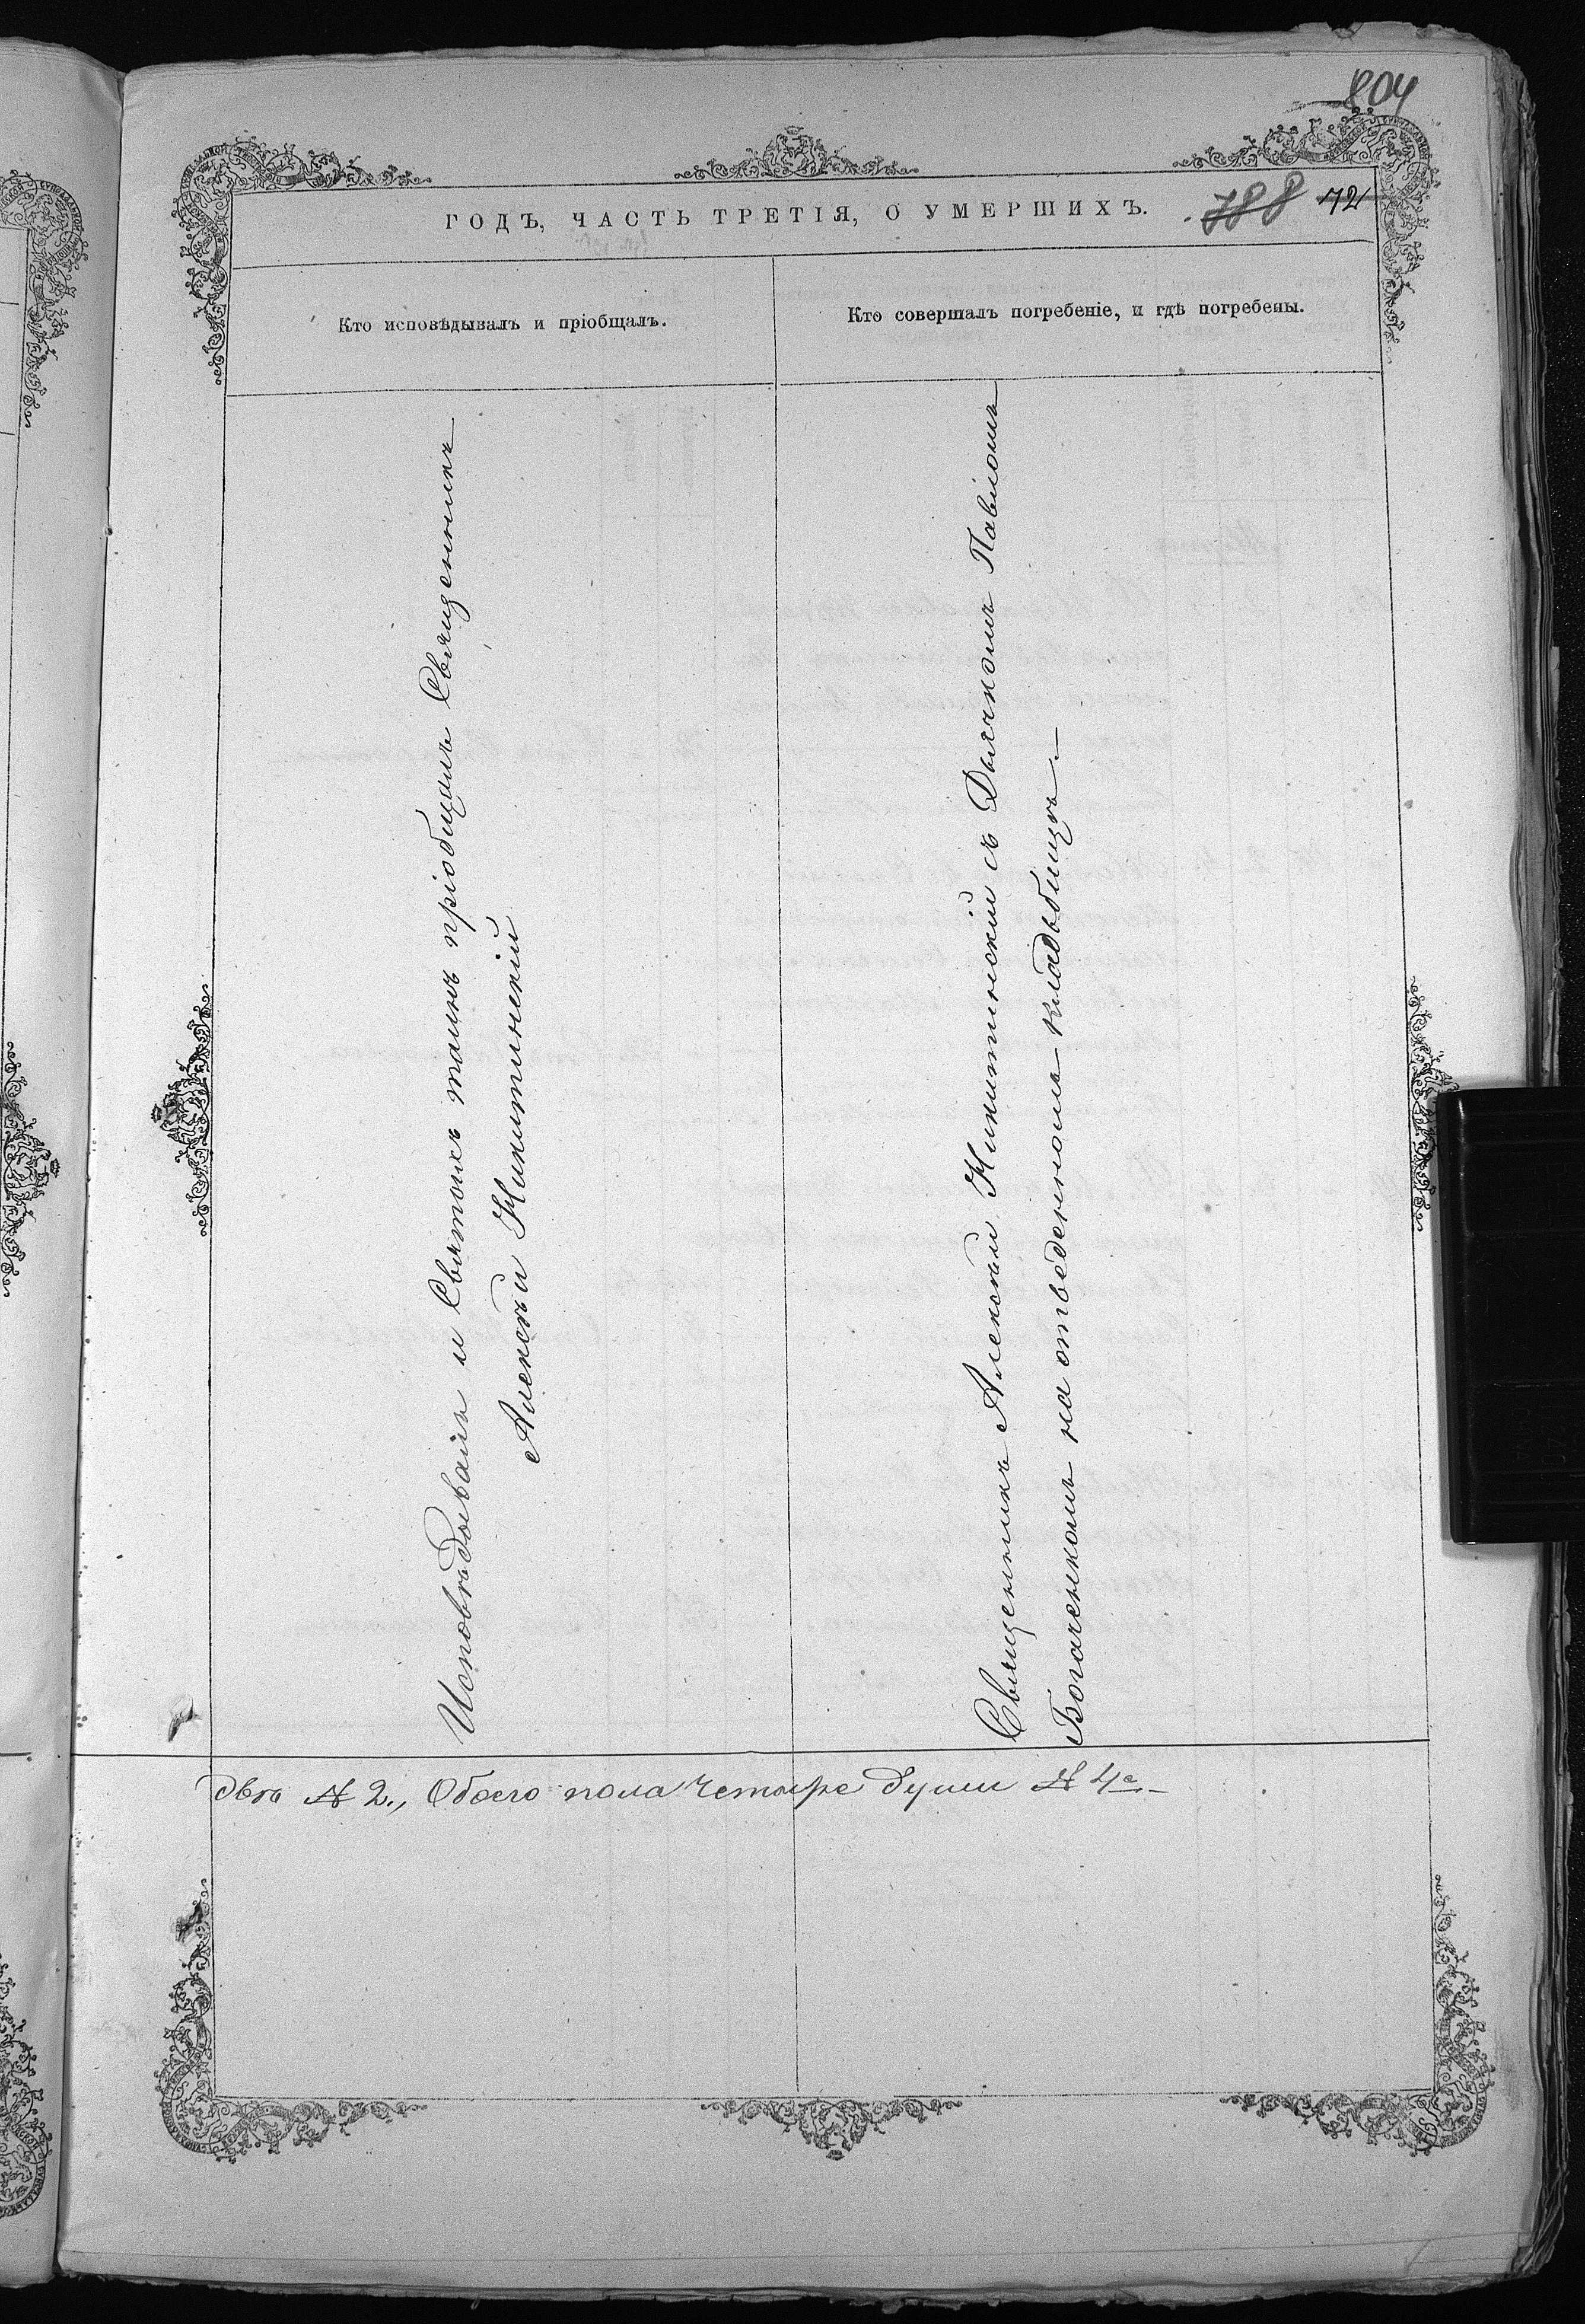 804
ГОДЪ, ЧАСТЬ ТРЕТІЯ, О УМЕРШИХЪ.
788 72
Кто исповѣдывалъ и пріобщалъ.
Кто совершалъ погребеніе, и гдѣ погребены.
Исповѣдывалъ и Святыхъ таинъ пріобщалъ Священникъ
Алексѣй Никитинскій
Священникъ Алексѣй Никитинскій съ Дьячкомъ Павломъ
Богаченкомъ на отведенномъ кладбищѣ
двѣ № 2., Обоего пола четыре души № 4е